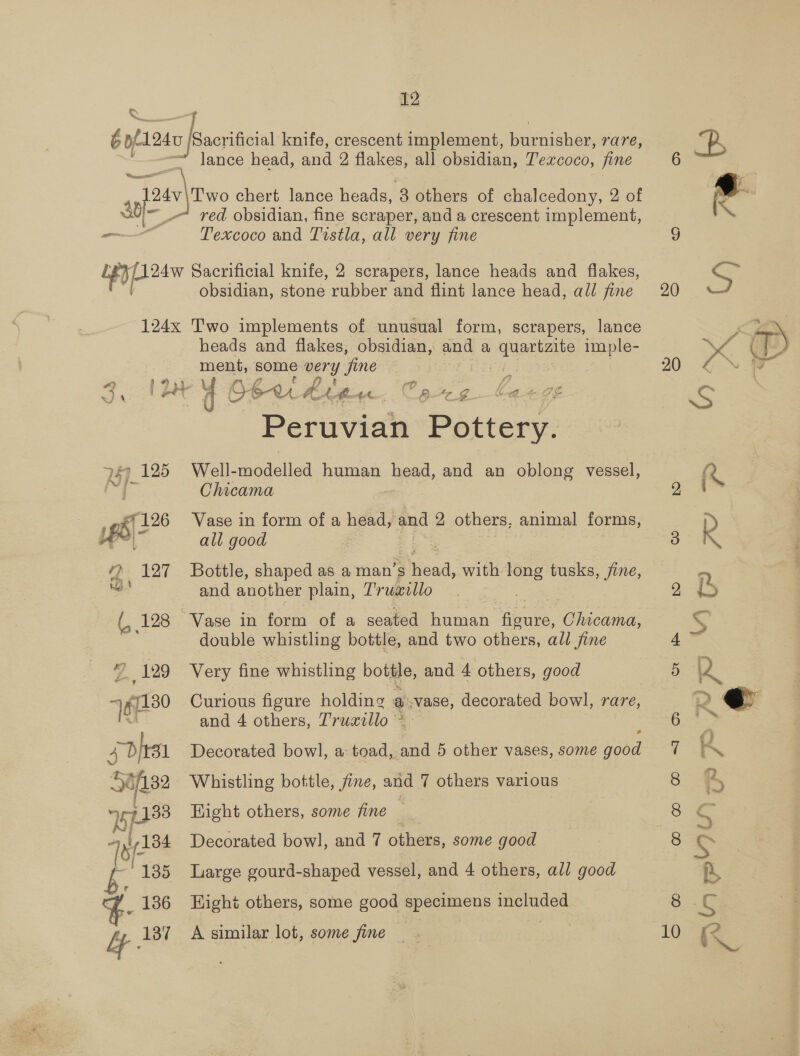 12
124u Sacrificial knife, crescent implement, burnisher, rare,
lance head, and 2 flakes, all obsidian, Texcoco, fine 6 B
124v Two chert lance heads, 3 others of chalcedony, 2 of
30/- red obsidian, fine scraper, and a crescent implement, R
Texcoco and Tistla, all very fine 9
124w Sacrificial knife, 2 scrapers, lance heads and flakes,
obsidian, stone rubber and flint lance head, all fine 20 S
124x Two implements of unusual form, scrapers, lance
heads and flakes, obsidian, and a quartzite imple-
ment, some very fine 20
3. 124 Y Obsidian Core large S
Peruvian Pottery.
125 Well-modelled human head, and an oblong vessel,
Chicama 2 R
126 Vase in form of a head, and 2 others, animal forms,
all good 3 R
127 Bottle, shaped as a man's head, with long tusks, fine,
and another plain, Truxillo 2 B
128 Vase in form of a seated human figure, Chicama,
double whistling bottle, and two others, all fine 4 S
129 Very fine whistling bottle, and 4 others, good 5 R
130 Curious figure holding a vase, decorated bowl, rare,
and 4 others, Truxillo 6 R
131 Decorated bowl, a toad, and 5 other vases, some good 7 R
132 Whistling bottle, fine, and 7 others various 8 B
133 Eight others, some fine 8 S
134 Decorated bowl, and 7 others, some good 8 S
135 Large gourd-shaped vessel, and 4 others, all good R
136 Eight others, some good specimens included 8 S
137 A similar lot, some fine 10 R